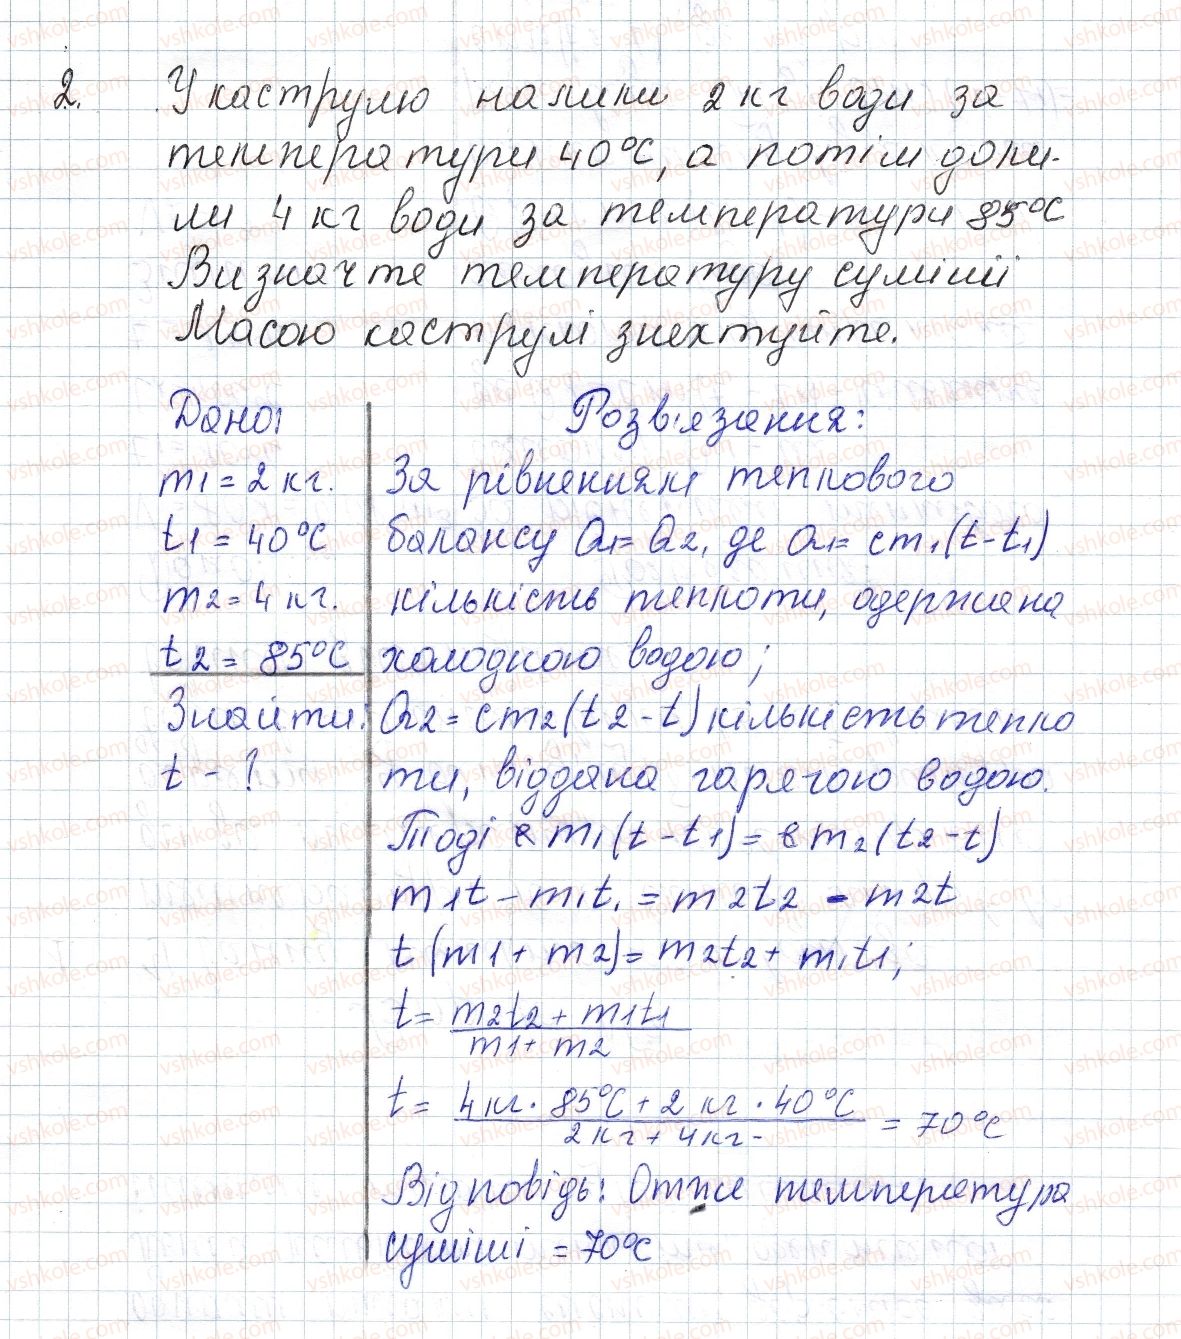 2. У каструлю налили 2 кг води за
температури 40°С, а потім доли-
ли 4 кг води за температури 85°С
Визначте температуру суміші
Масою каструлі знехтуйте.
Дано:
m1 = 2 кг.
t1 = 40°С
m2 = 4 кг.
t2 = 85°С
Знайти:
t - ?
Розв'язання:
За рівнянням теплового
балансу Q1 = Q2, де Q1 = cm1(t-t1)
кількість теплоти, одержана
холодною водою;
Q2 = cm2(t2-t) кількість тепло
ти, віддана гарячою водою.
Тоді c m1(t-t1) = c m2(t2-t)
m1t - m1t1 = m2t2 - m2t
t(m1 + m2) = m2t2 + m1t1;
t = m2t2 + m1t1
m1 + m2
t = 4 кг · 85°С + 2 кг · 40°С = 70°С
2 кг + 4 кг
Відповідь: Отже температура
суміші = 70°С
vshkole.com